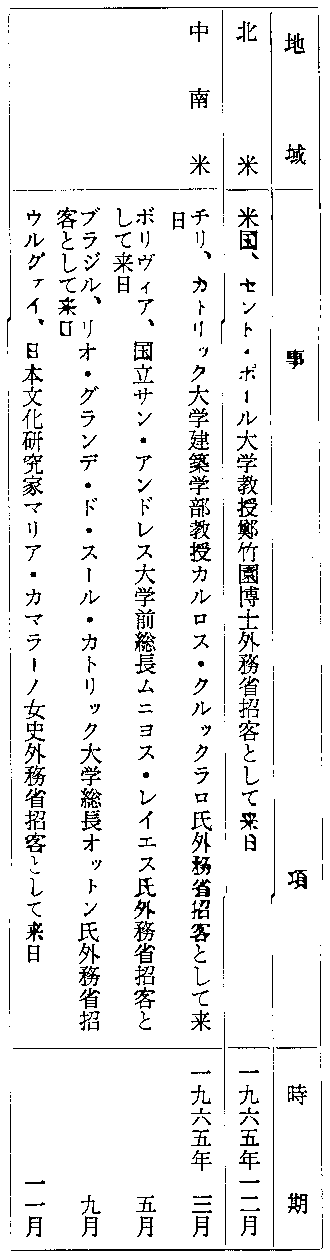 地域 事項 時期
北米 米国、セント・ポール大学教授鄭竹園博士外務省招客として来日 一九六五年一二月
中南米 チリ、カトリック大学建築学部教授カルロス・クルックラロ氏外務省招客として来
日 一九六五年 三月
ボリヴィア、国立サン・アンドレス大学前総長ムニョス・レイエス氏外務省招客と
して来日 五月
ブラジル、リオ・グランデ・ド・スール・カトリック大学総長オットン氏外務省招
客として来日 九月
ウルグァイ、日本文化研究家マリア・カマラーノ女史外務省招客として来日 一一月